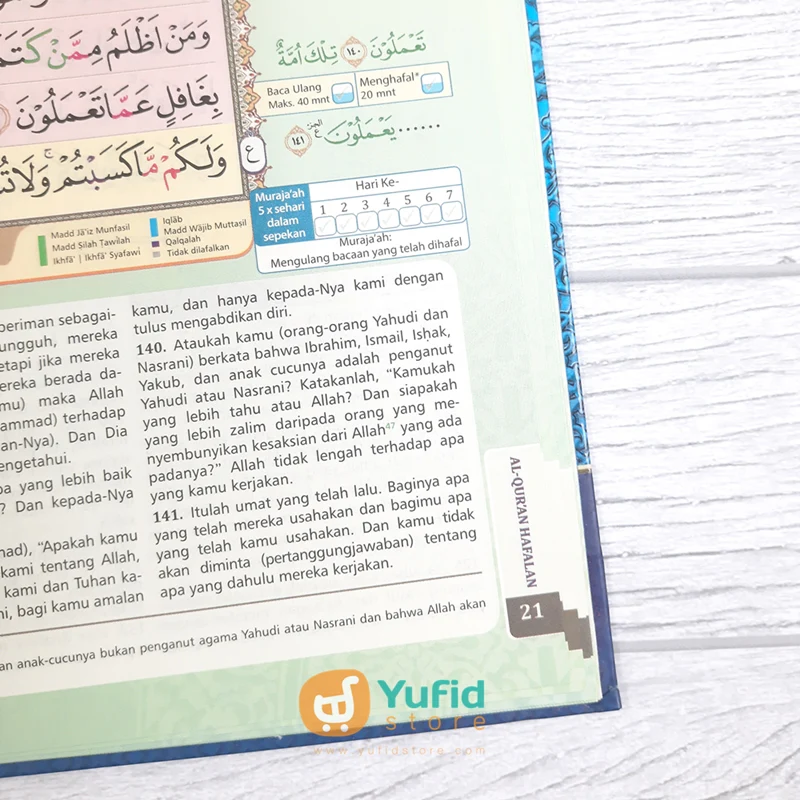 وَمَنْ اَظْلَمُ مِمَّنْ كَتَمَ
بِغَافِلٍ عَمَّا تَعْمَلُوْنَ
وَلَكُمْ مَّا كَسَبْتُمْ ۚ وَلَا
ع
تَعْمَلُوْنَ ١٤٠ تِلْكَ اُمَّةٌ
Baca Ulang
Maks. 40 mnt
Menghafal*
20 mnt
...... يَعْمَلُوْنَ ١٤١
Muraja'ah
5 x sehari
dalam
sepekan
Hari Ke-
1 2 3 4 5 6 7
Muraja'ah:
Mengulang bacaan yang telah dihafal
Madd Jā'iz Munfasil
Madd Ṣilah Ṭawilah
Ikhfā' | Ikhfā' Syafawi
Iqlāb
Madd Wājib Muttaṣil
Qalqalah
Tidak dilafalkan
beriman sebagai-
ungguh, mereka
etapi jika mereka
ereka berada da-
mu) maka Allah
ammad) terhadap
an-Nya). Dan Dia
engetahui.
pa yang lebih baik
? Dan kepada-Nya
mad), "Apakah kamu
kami tentang Allah,
kami dan Tuhan ka-
ni, bagi kamu amalan
kamu, dan hanya kepada-Nya kami dengan
tulus mengabdikan diri.
140. Ataukah kamu (orang-orang Yahudi dan
Nasrani) berkata bahwa Ibrahim, Ismail, Isḥak,
Yakub, dan anak cucunya adalah penganut
Yahudi atau Nasrani? Katakanlah, "Kamukah
yang lebih tahu atau Allah? Dan siapakah
yang lebih zalim daripada orang yang me-
nyembunyikan kesaksian dari Allah47 yang ada
padanya?" Allah tidak lengah terhadap apa
yang kamu kerjakan.
141. Itulah umat yang telah lalu. Baginya apa
yang telah mereka usahakan dan bagimu apa
yang telah kamu usahakan. Dan kamu tidak
akan diminta (pertanggungjawaban) tentang
apa yang dahulu mereka kerjakan.
an anak-cucunya bukan penganut agama Yahudi atau Nasrani dan bahwa Allah akan
AL-QUR'AN HAFALAN
21
Yufid
store
www.yufidstore.com